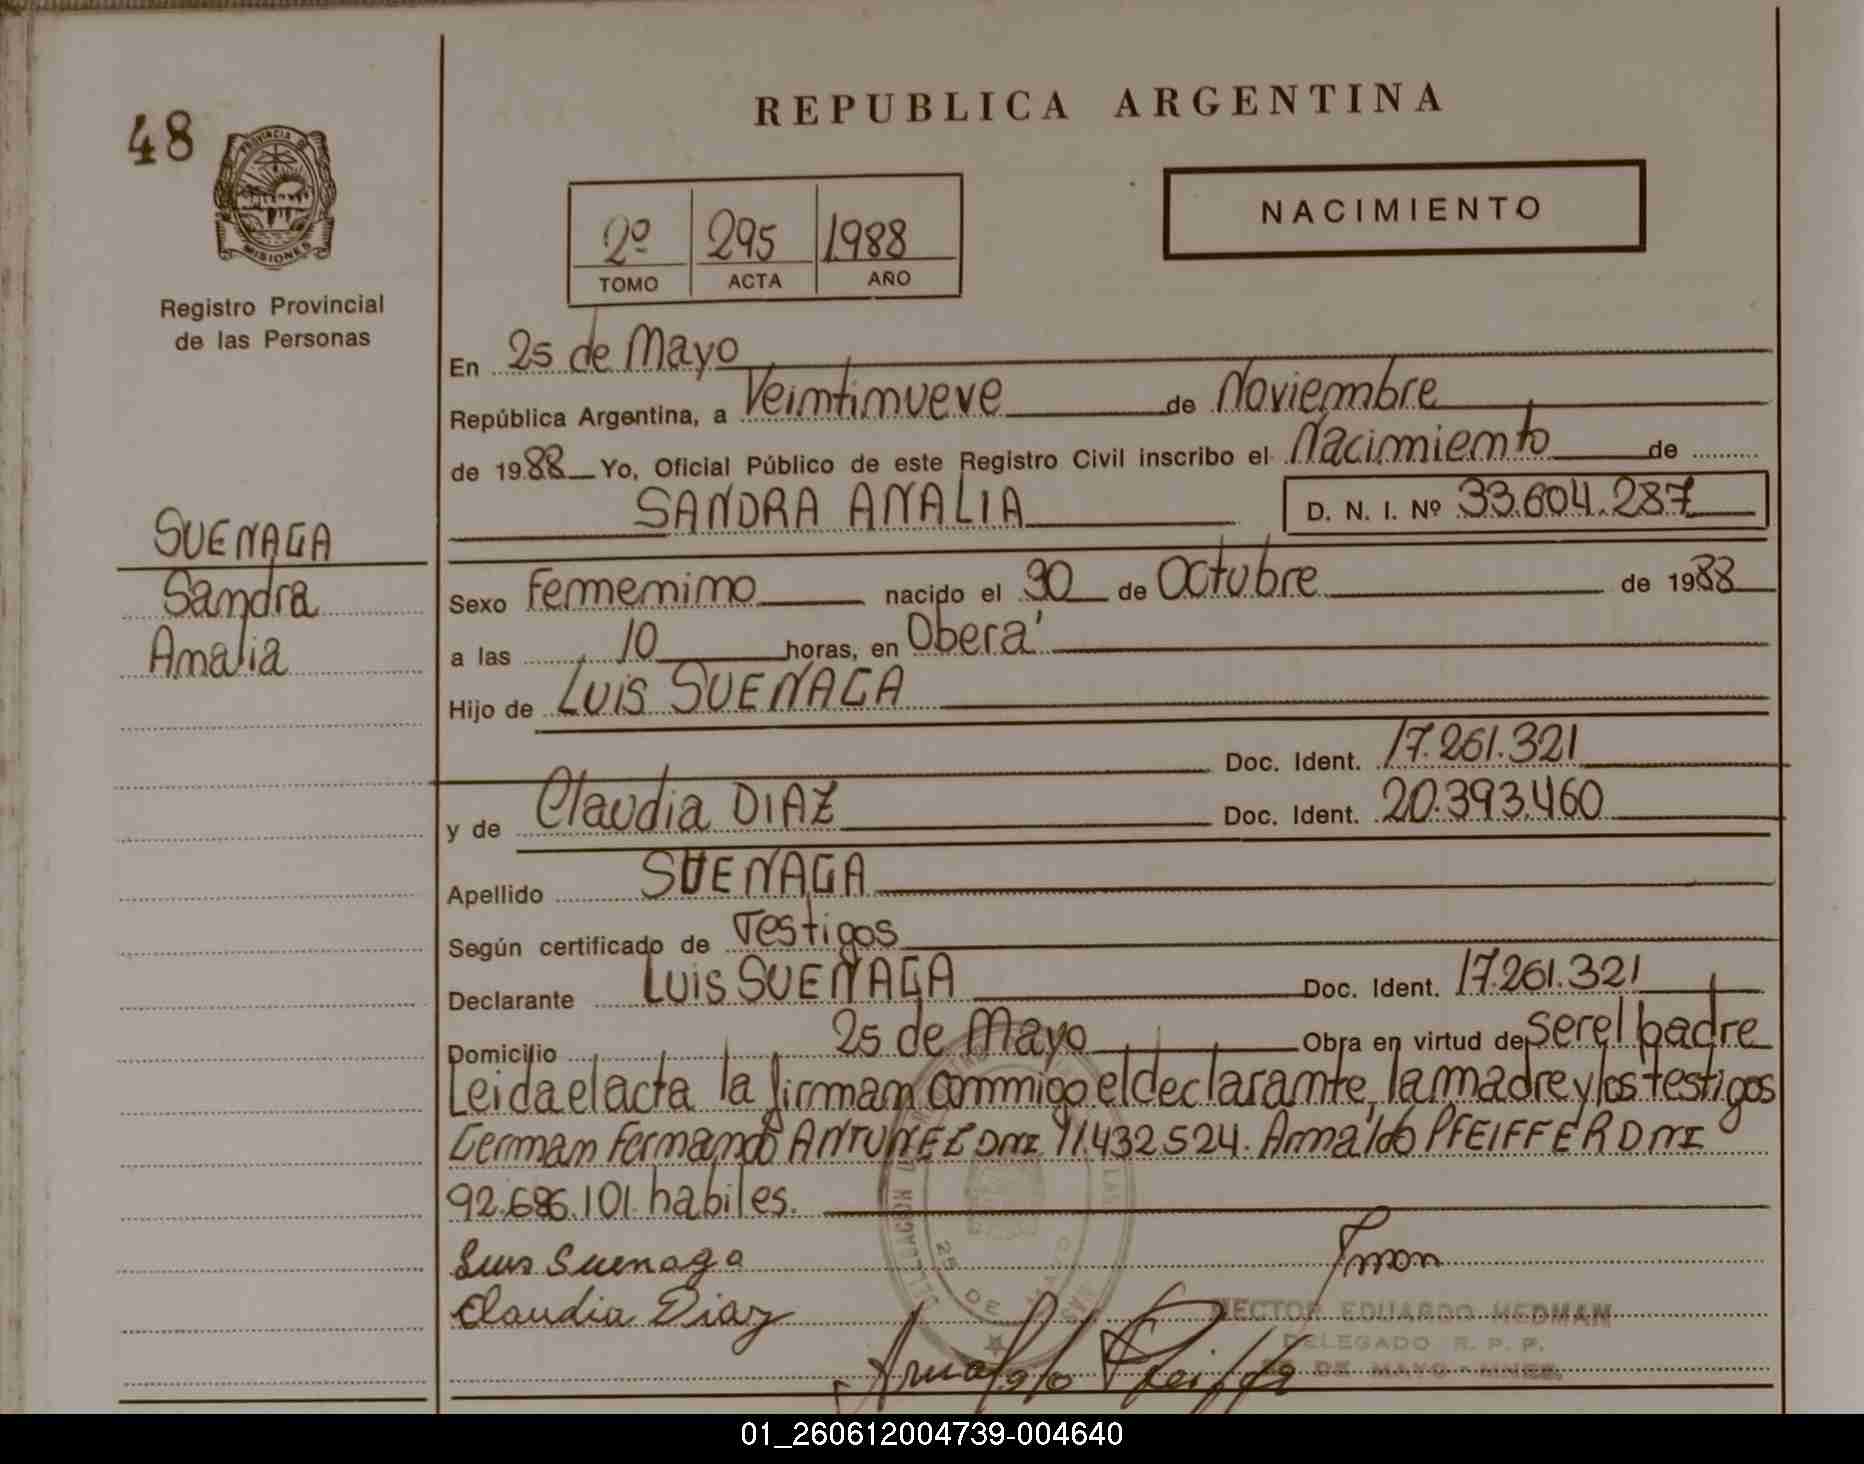 48
PROVINCIA DE
MISIONES
Registro Provincial
de las Personas
SUENAGA
Sandra
Analia
REPUBLICA ARGENTINA
2º 295 1988
TOMO ACTA AÑO
NACIMIENTO
En 25 de Mayo
República Argentina, a Veintinueve de Noviembre
de 1988 Yo, Oficial Público de este Registro Civil inscribo el Nacimiento de
SANDRA ANALIA D. N. I. Nº 33.604.287
Sexo Femenino nacido el 30 de Octubre de 1988
a las 10 horas, en Oberá
Hijo de LUIS SUENAGA
Doc. Ident. 17.261.321
y de Claudia DIAZ Doc. Ident. 20.393.460
Apellido SUENAGA
Según certificado de Testigos
Declarante LUIS SUENAGA Doc. Ident. 17.261.321
Domicilio 25 de Mayo Obra en virtud de ser el padre
Leida el acta la firman conmigo el declarante, la madre y los testigos
German Fernando DNI 11.432.524. Arnaldo PFEIFFER DNI
92.686.101 habiles.
Luis Suenaga
Claudia Diaz
HECTOR EDUARDO HEDMAN
DELEGADO R. P. P.
25 DE MAYO - MNES.
Arnaldo Pfeiffer
01_260612004739-004640